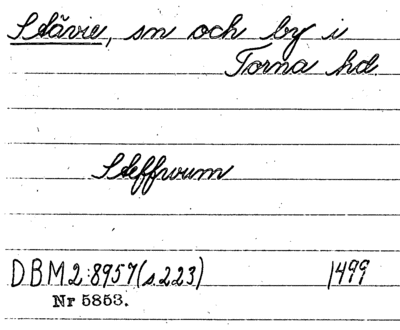 Stävie, sn och by i
Torna hd.
Steffwum
DBM2:8957(s.223) 1499
Nr 5853.